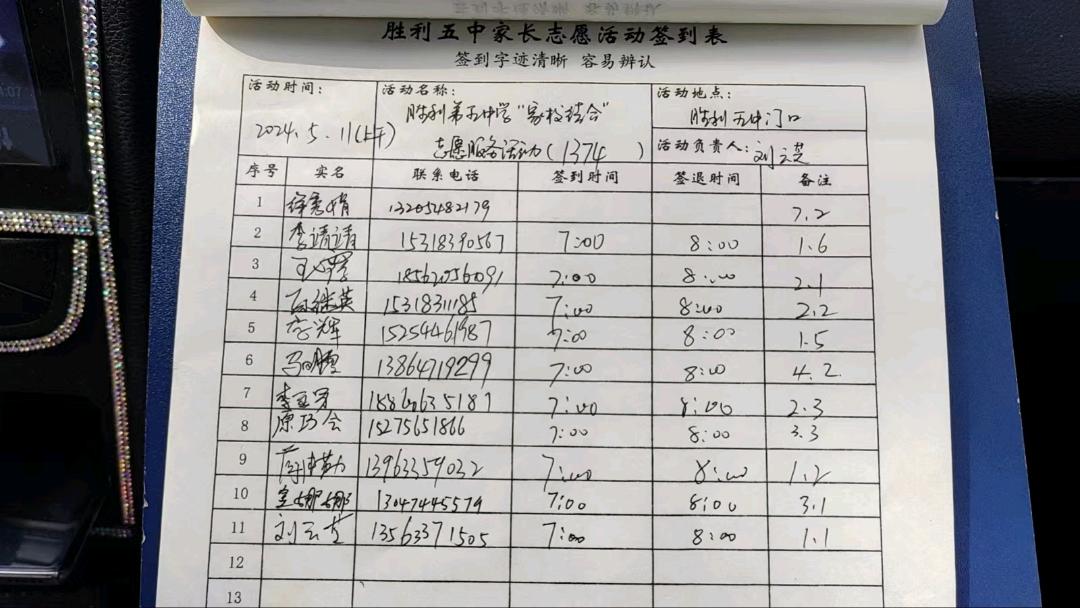 胜利五中家长志愿活动签到表
签到字迹清晰 容易辨认
活动时间: 活动名称: 活动地点:
2024.5.11(上午) 胜利第五中学"家校结合" 胜利五中门口
志愿服务活动(1374) 活动负责人:刘云芝
序号 实名 联系电话 签到时间 签退时间 备注
1 13205482179 7.2
2 李靖靖 15318390567 7:00 8:00 1.6
3 18562056091 7:00 8:00 2.1
4 15318311185 7:00 8:00 2.2
5 15254461987 7:00 8:00 1.5
6 13864719299 7:00 8:00 4.2
7 7:00 8:00 2.3
8 原巧会 15275651866 7:00 8:00 3.3
9 13963359032 7:00 8:00 1.2
10 娜娜 13047445579 7:00 8:00 3.1
11 刘云芝 13563371505 7:00 8:00 1.1
12
13